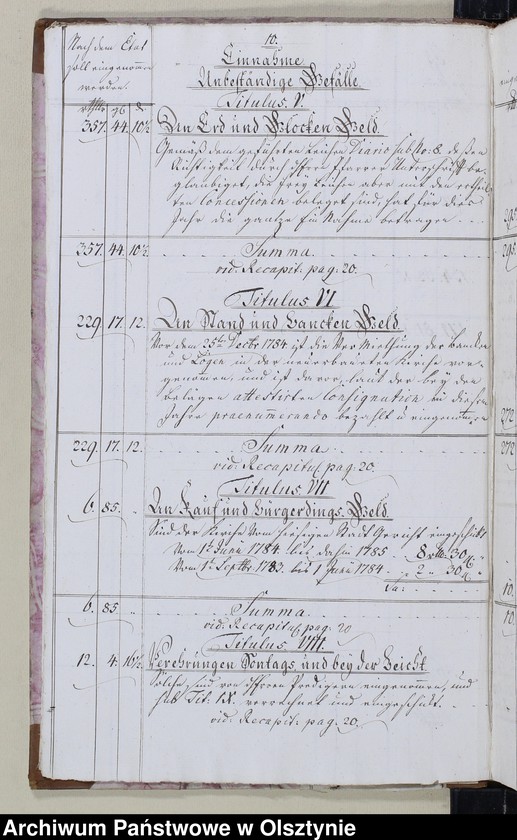 10.
Nach dem Etat
soll eingenommen
werden.
Einnahme
Unbeständige Gefälle
Titulus V.
357. 44. 10½ Den Erd und Glocken Geld.
Gemäß dem geführten Diario sub No: 8. deßen
Richtigkeit durch Herrn Pfarrer Unterschrift be-
glaubiget, die frey aber mit den
ten Concessionen beleget sind, hat für dies
Jahr die gantze Einnahme betragen
357. 44. 10½ Summa
vid. Recapit: pag: 20.
Titulus VI
229 17. 12. Den Stand und Bancken Geld
Vor dem 25t. Decbr 1784. ist die Vermiethung der Bancken
und Logen in der neuerbauten Kirche vor-
genommen, und ist davor, laut der bey den
Belägen attestirten Consignation in diesem
Jahre praenumerando bezahlt u eingenommen
272
229. 17. 12. Summa 272
vid: Recapitul pag: 20.
Titulus VII
6. 85. Den Kauf und Bürgerdings Geld
Sind der Kirche vom hiesigen Stadt Gericht eingeschickt
Vom 1t Juny 1784. bis dahin 1785 8 rthl. 30
Vom 1t Septbr. 1783. bis 1 Juny 1784. 2 30
Sa: 10.
6. 85 Summa 10
vid. Recapitul pag: 20
Titulus VIII.
12. 4. 16½ Verehrungen Sontags und bey der Beicht
Solche sind von Herren Predigern eingenommen, und
sub Tit: IX. verrechnet und eingeschickt.
vid: Recapit: pag: 20.
Archiwum Państwowe w Olsztynie